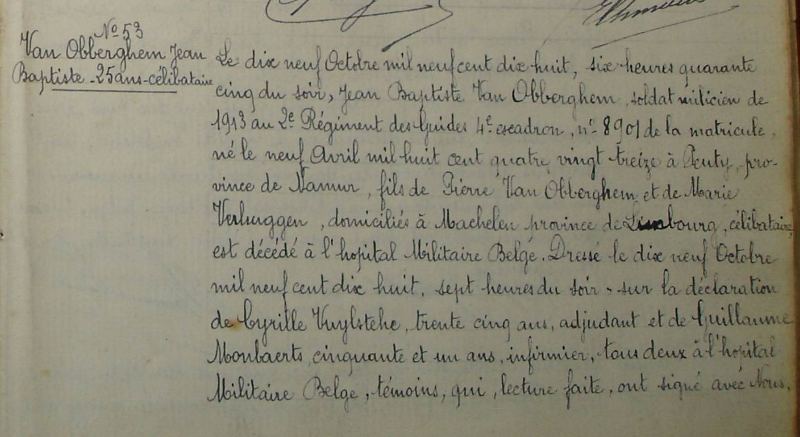 Nº 53
Van Obberghem Jean
Baptiste - 25 ans - célibataire
Le dix neuf Octobre mil neuf cent dix huit, six heures quarante
cinq du soir, Jean Baptiste Van Obberghem, soldat milicien de
1913 au 2e Régiment des Guides 4e escadron, nº 8901 de la matricule,
né le neuf Avril mil huit cent quatre vingt treize à Peuty, pro-
vince de Namur, fils de Pierre Van Obberghem et de Marie
Verhuggen, domiciliés à Machelen province de Limbourg, célibataire,
est décédé à l'hopital Militaire Belge. Dressé le dix neuf Octobre
mil neuf cent dix huit, sept heures du soir - sur la déclaration
de Cyrille Vuylsteke, trente cinq ans, adjudant et de Guillaume
Monbaerts, cinquante et un ans, infirmier, tous deux à l'hopital
Militaire Belge, témoins, qui, lecture faite, ont signé avec Nous.